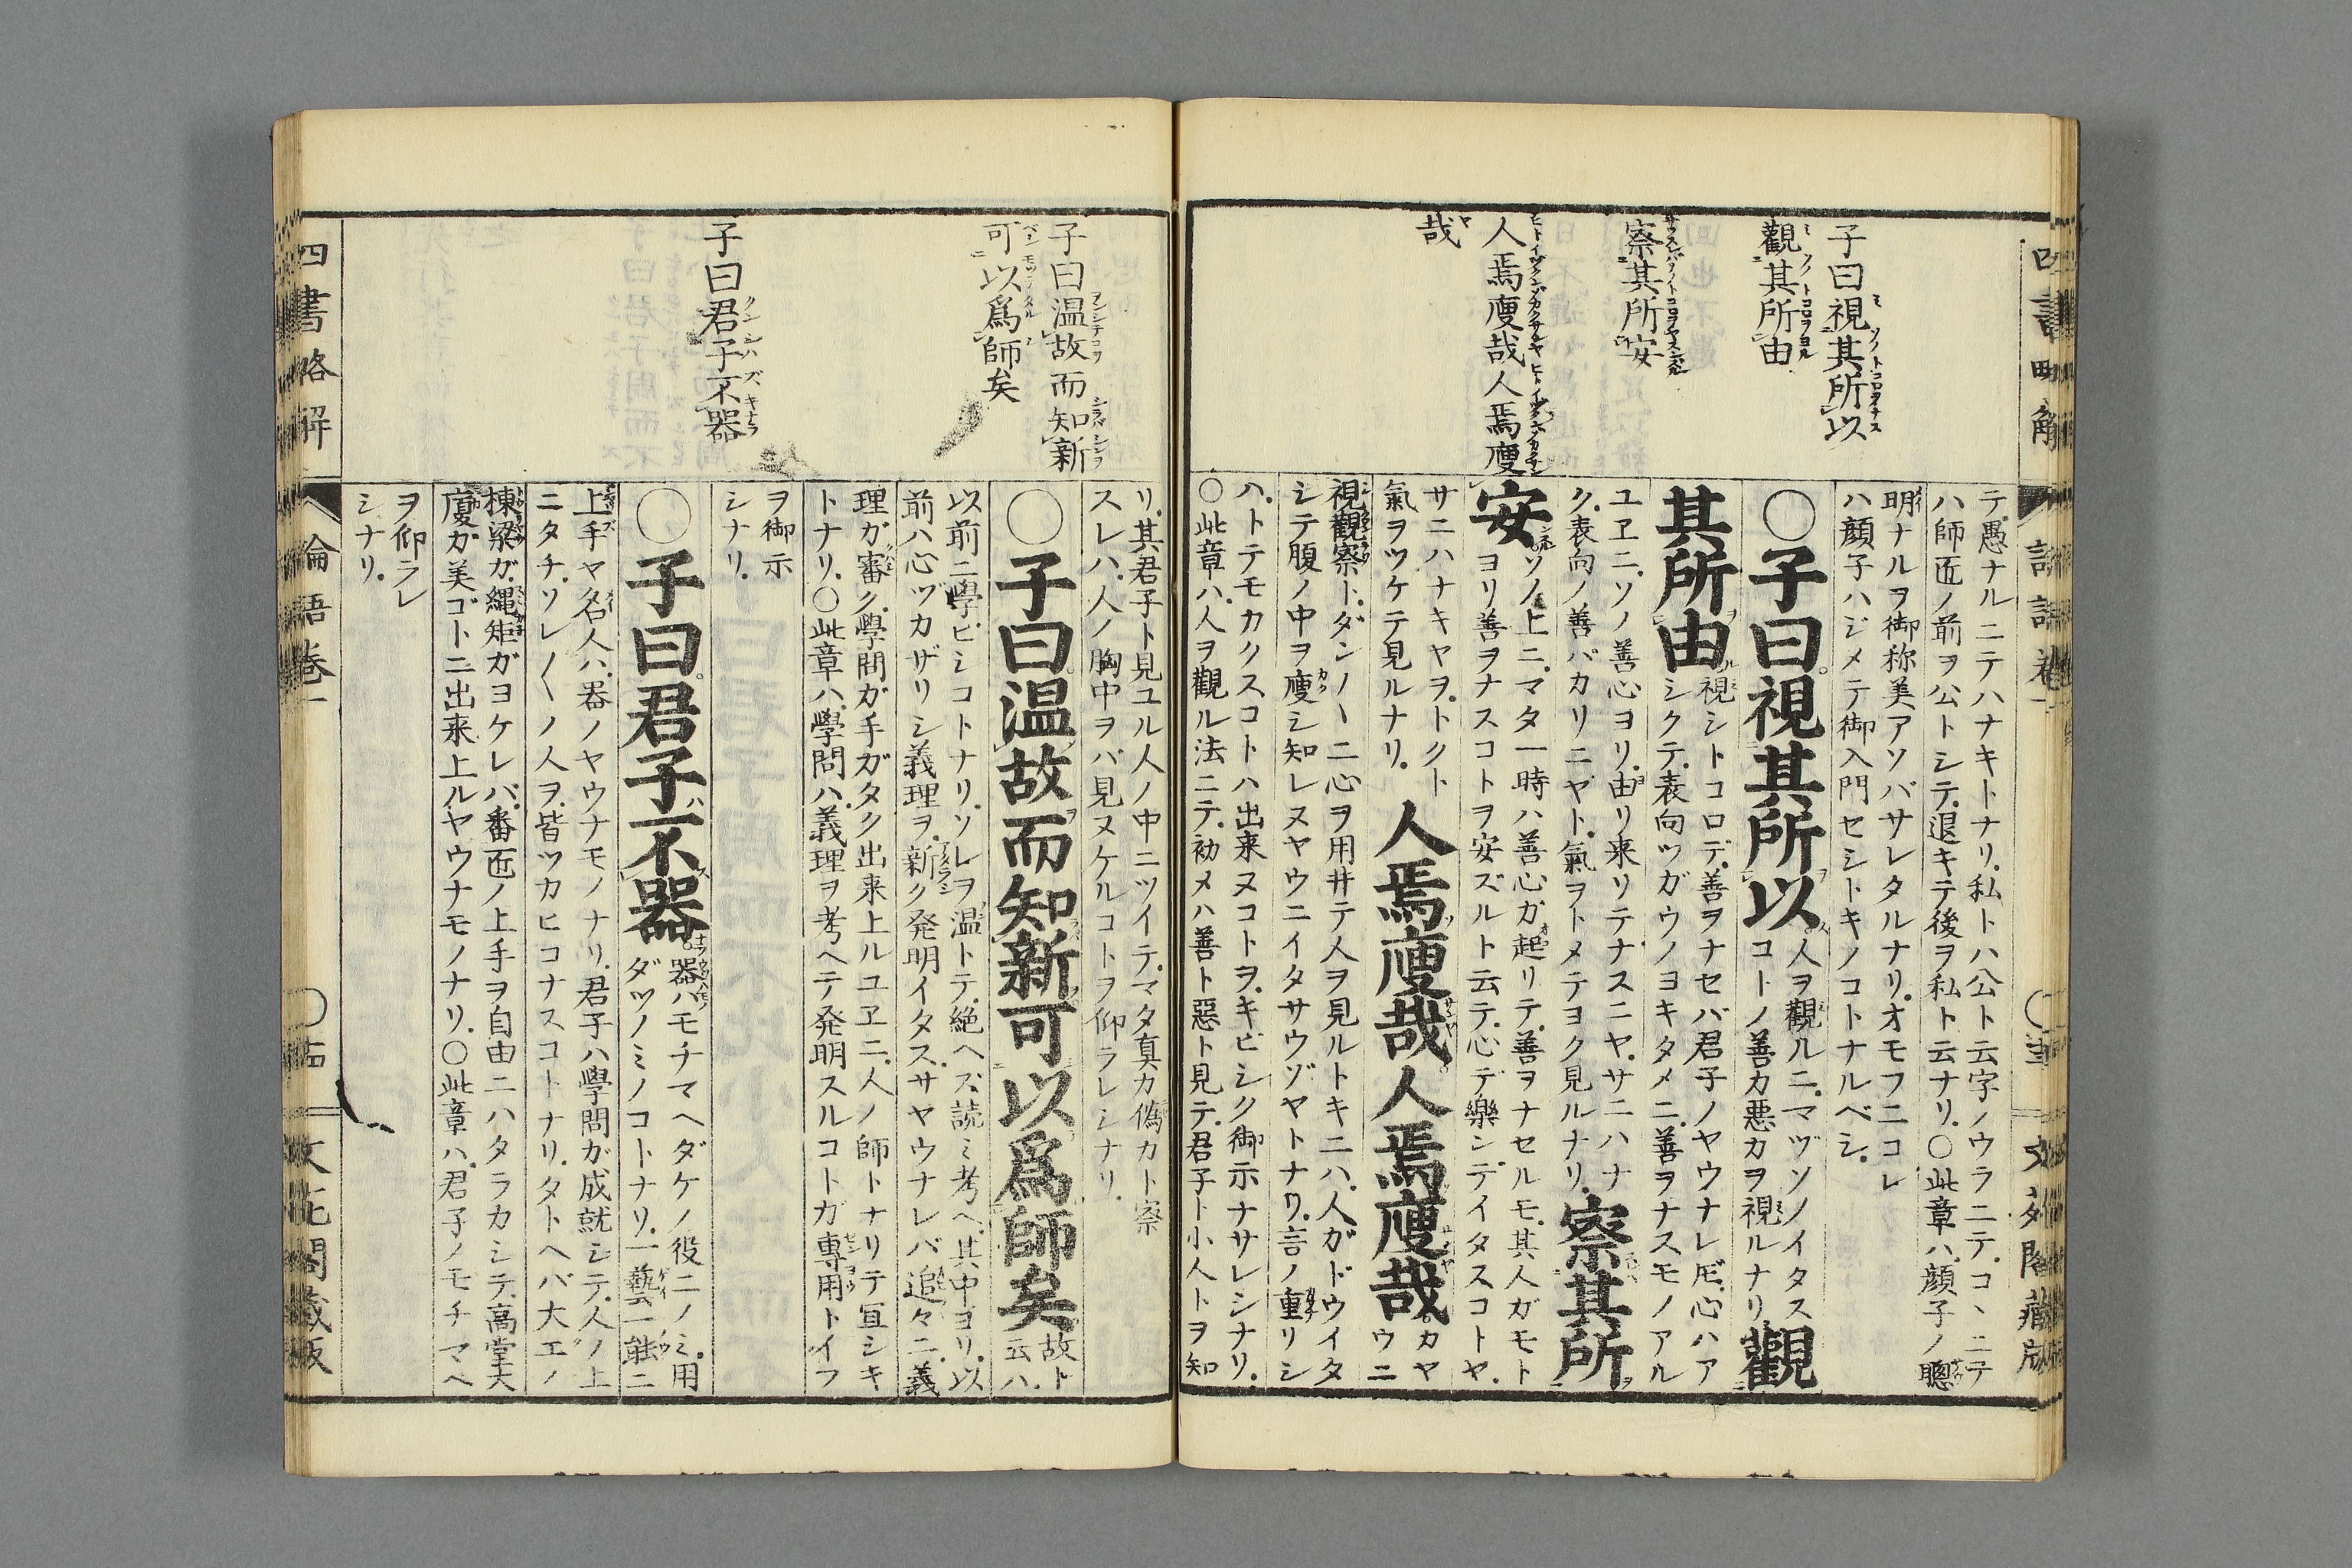 子曰視其所以
觀其所由
察其所安
人焉廋哉人焉廋
哉
テ愚ナルニテハナキトナリ私トハ公ト云字ノウラニテコヽニテ
ハ師匠ノ前ヲ公トシテ退キテ後ヲ私ト云ナリ○此章ハ顔子ノ聰
明ナルヲ御称美アソバサレタルナリオモフニコレ
ハ顔子ハジメテ御入門セシトキノコトナルベシ
○子曰視其所以
人ヲ觀ルニマヅソノイタス
コトノ善カ悪カヲ視ルナリ
觀
其所由
視シトコロデ善ヲナセバ君子ノヤウナレ𪜈心ハア
シクテ表向ツガウノヨキタメニ善ヲナスモノアル
ユヱニソノ善心ヨリ由リ来リテナスニヤサニハナ
ク表向ノ善バカリニヤト氣ヲトメテヨク見ルナリ
察其所
安
ソノ上ニマタ一時ハ善心カ起リテ善ヲナセルモ其人ガモト
ヨリ善ヲナスコトヲ安ズルト云テ心デ樂ンデイタスコトヤ
サニハナキヤヲトクト
氣ヲツケテ見ルナリ
人焉廋哉人焉廋哉
カヤ
ウニ
視觀察トダン〱ニ心ヲ用井テ人ヲ見ルトキニハ人ガドウイタ
シテ腹ノ中ヲ廋シ知レヌヤウニイタサウゾヤトナリ言ノ重リシ
ハトテモカクスコトハ出来ヌコトヲキビシク御示ナサレシナリ
○此章ハ人ヲ觀ル法ニテ初メハ善ト惡ト見テ君子ト小人トヲ知
四書略解
論語卷一
子曰温故而知新
可以爲師矣
子曰君子不器
リ其君子ト見ユル人ノ中ニツイテマタ真カ偽カト察
スレハ人ノ胸中ヲバ見ヌケルコトヲ仰ラレシナリ
○子曰温故而知新可以爲師矣
故ト
云ハ
以前ニ學ビシコトナリソレヲ温トテ絶ヘズ読ミ考ヘ其中ヨリ以
前ハ心ヅカザリシ義理ヲ新ク発明イタスサヤウナレバ追々ニ義
理ガ審ク學問ガ手ガタク出来上ルユヱニ人ノ師トナリテ宜シキ
トナリ○此章ハ學問ハ義理ヲ考ヘテ発明スルコトガ專用トイフ
ヲ御示
シナリ
○子曰君子不器
器ハモチマヘダケノ役ニノミ用
ダツノミノコトナリ一藝一能ニ
上手ヤ名人ハ器ノヤウナモノナリ君子ハ學問ガ成就シテ人ノ上
ニタチソレ〱ノ人ヲ皆ツカヒコナスコトナリタトヘバ大エノ
棟梁ガ縄矩ガヨケレバ番匠ノ上手ヲ自由ニハタラカシテ高堂大
廈カ美ゴトニ出来上ルヤウナモノナリ○此章ハ君子ノモチマヘ
ヲ仰ラレ
シナリ
四書略解
論語卷一